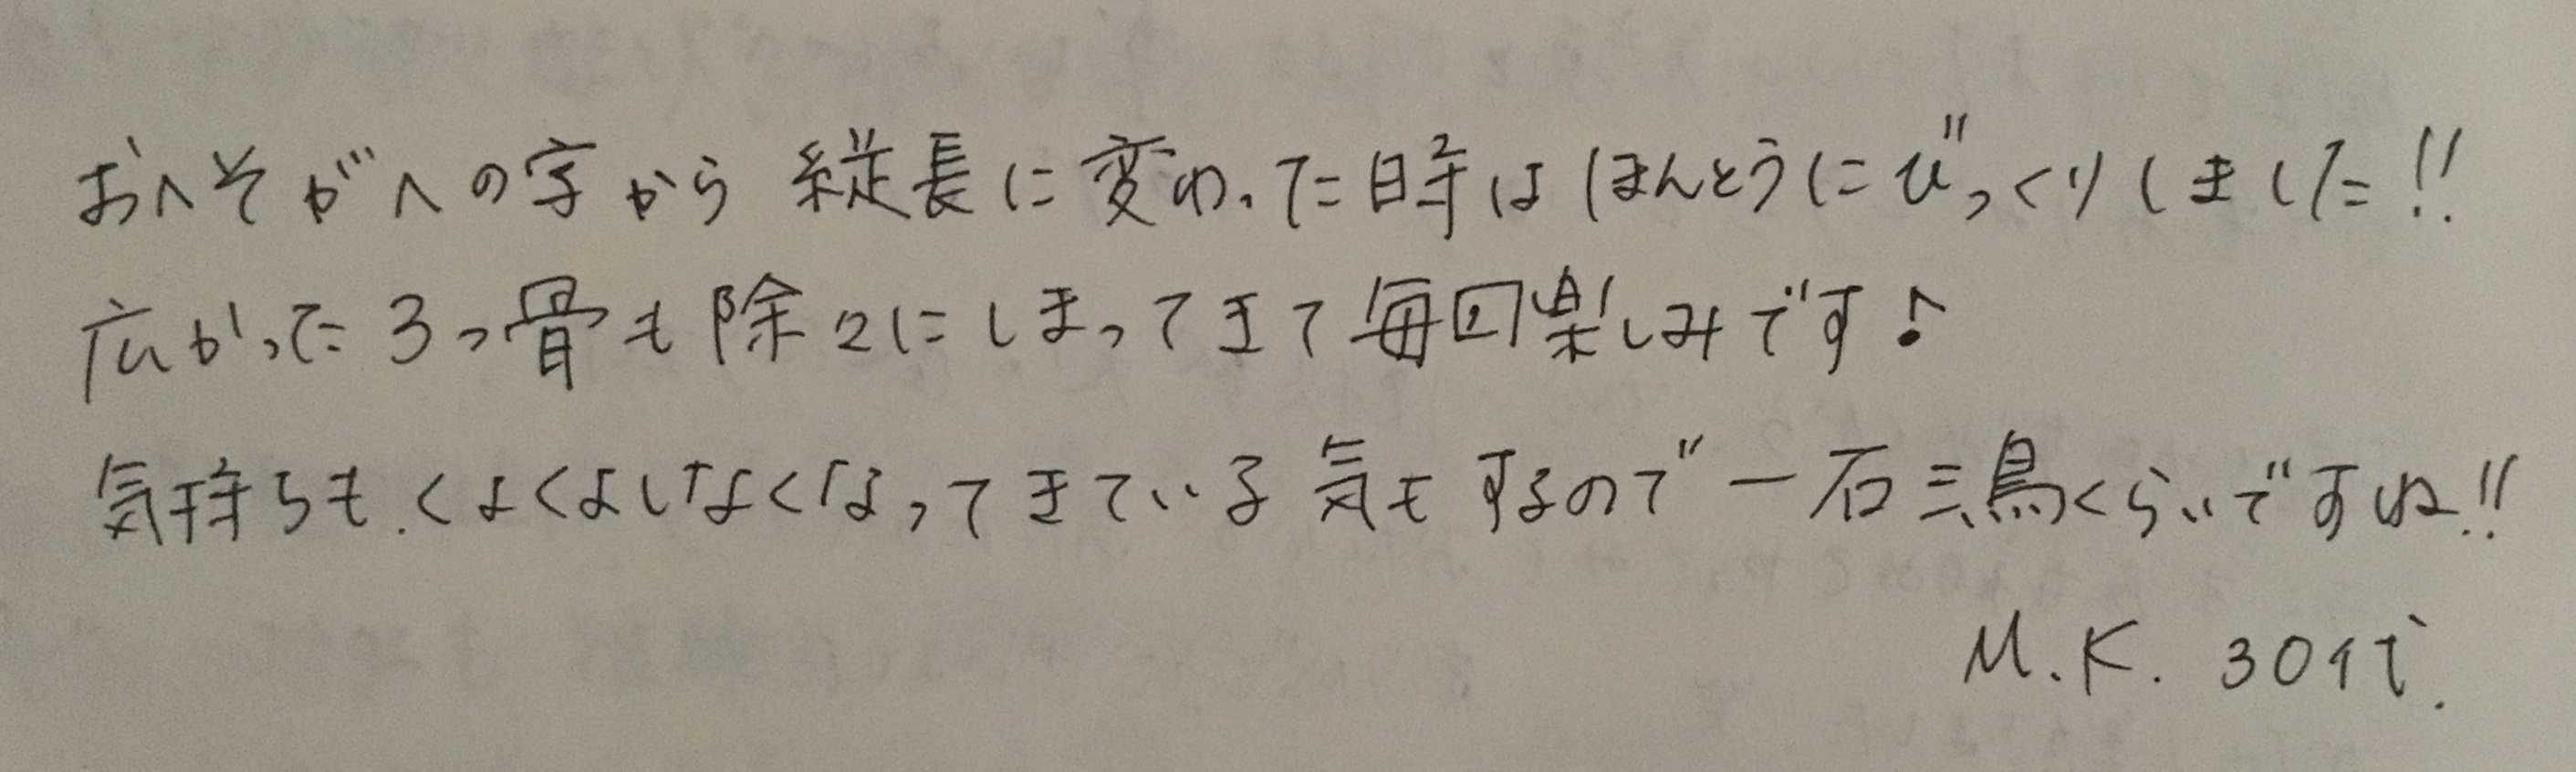 おへそがへの字から縦長に変わった時はほんとうにびっくりしました!!
広がったろっ骨も除々にしまってきて毎回楽しみです♪
気持ちも、くよくよしなくなってきている気もするので一石三鳥くらいですね!!
M.K. 30代.